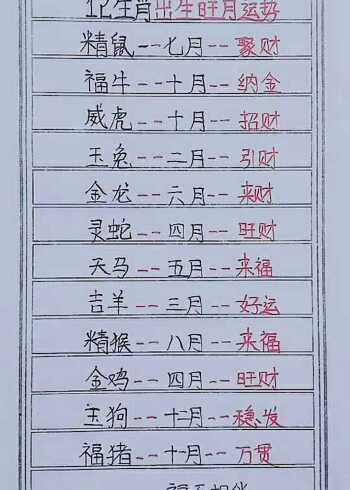 12生肖出生旺月运势
精鼠--七月--聚财
福牛--十月--纳金
威虎--十月--招财
玉兔--二月--引财
金龙--六月--来财
灵蛇--四月--旺财
天马--五月--来福
吉羊--三月--好运
精猴--八月--来福
金鸡--四月--旺财
玉狗--十二月--稳发
福猪--十一月--万贯